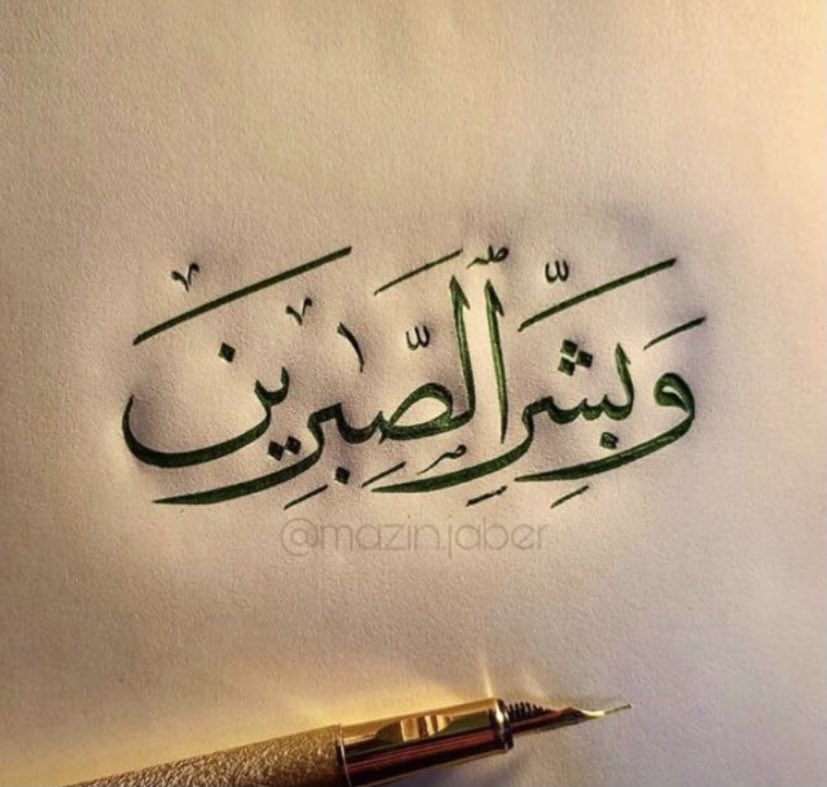 وَبَشِّرِ ٱلصَّٰبِرِينَ
@mazin.jaber